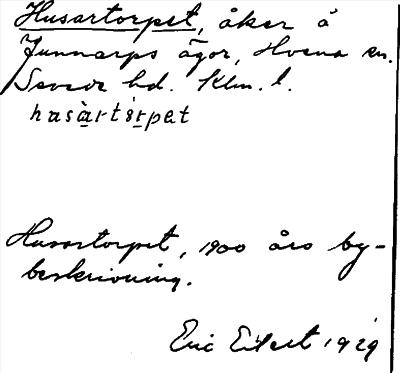 Husartorpet, åker å
Gunnarps ägor, Hvena sn.
Sevede hd. Klm. l.
husàrtòrpet
Husartorpet, 1900 års by-
beskrivning.
Eric Eilert 1929